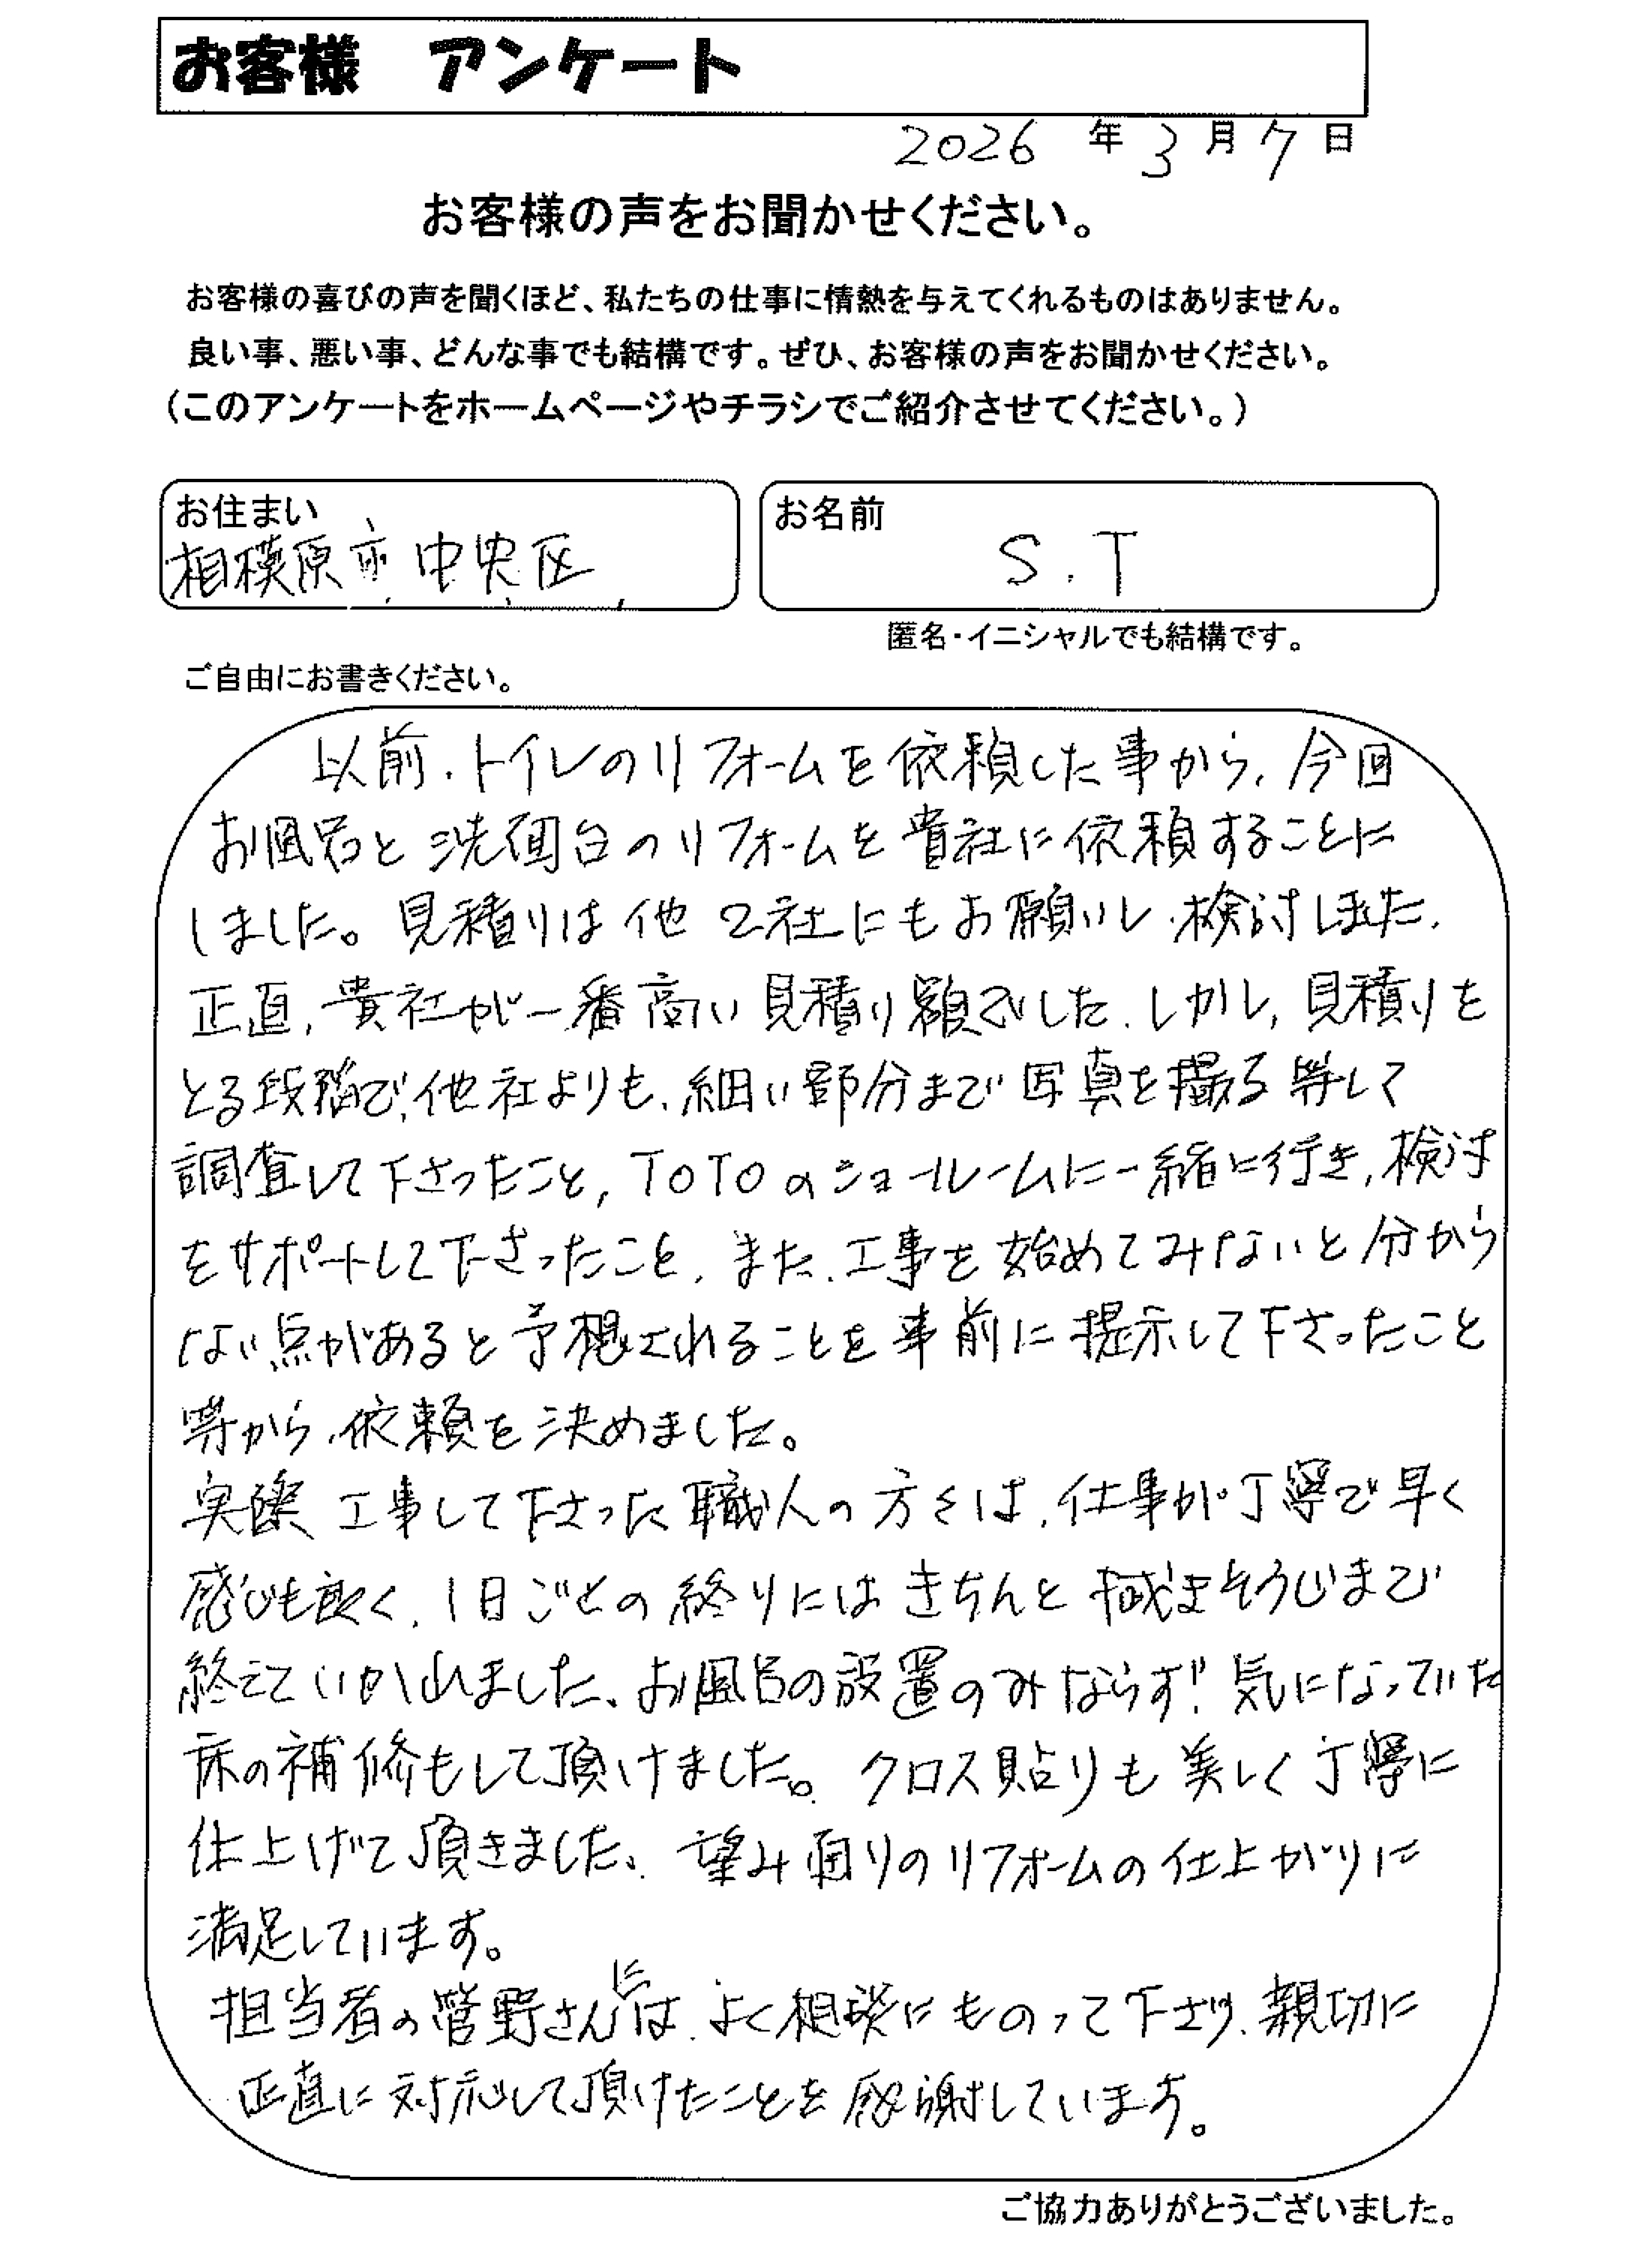 お客様　アンケート
2026 年 3 月 7 日
お客様の声をお聞かせください。
お客様の喜びの声を聞くほど、私たちの仕事に情熱を与えてくれるものはありません。
良い事、悪い事、どんな事でも結構です。ぜひ、お客様の声をお聞かせください。
（このアンケートをホームページやチラシでご紹介させてください。）
お住まい
相模原市中央区
お名前
S.T
匿名・イニシャルでも結構です。
ご自由にお書きください。
以前、トイレのリフォームを依頼した事から、今回
お風呂と洗面台のリフォームを貴社に依頼することに
しました。見積りは他2社にもお願いし、検討しました。
正直、貴社が一番高い見積り額でした。しかし、見積りを
とる段階で、他社よりも、細い部分まで写真を撮る等して
調査して下さったこと、TOTOのショールームに一緒に行き、検討
をサポートして下さったこと、また、工事を始めてみないと分から
ない点があると予想されることを事前に提示して下さったこと
等から、依頼を決めました。
実際 工事して下さった職人の方々は、仕事が丁寧で早く
感じも良く、1日ごとの終りにはきちんと そうじまで
終えていかれました。お風呂の設置のみならず、気になっていた
床の補修もして頂けました。クロス貼りも美しく丁寧に
仕上げて頂きました。望み通りのリフォームの仕上がりに
満足しています。
担当者の菅野さんには、よく相談にものって下さり、親切に
正直に対応して頂けたことを感謝しています。
ご協力ありがとうございました。